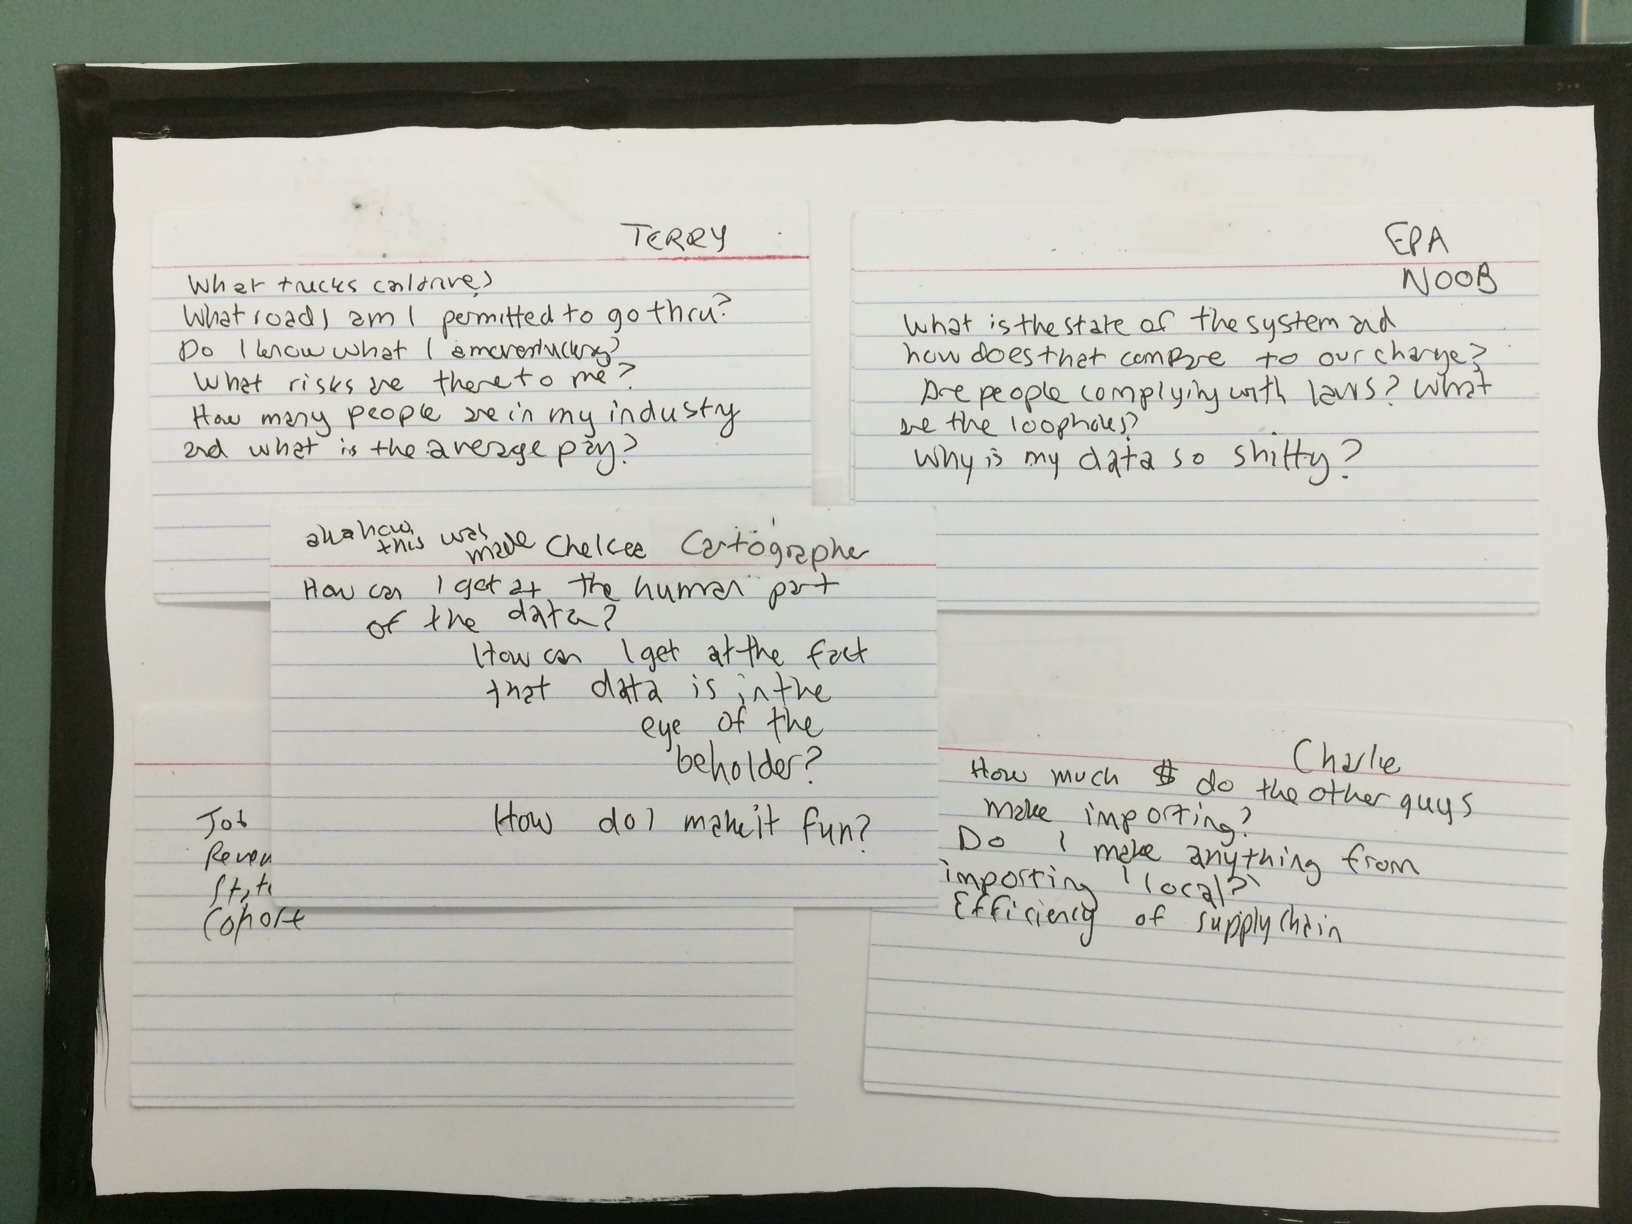 TERRY
What trucks can I drive?
What roads am I permitted to go thru?
Do I know what I am overtrucking?
What risks are there to me?
How many people are in my industry
and what is the average pay?
EPA
NOOB
What is the state of the system and
how does that compare to our charge?
Are people complying with laws? What
are the loopholes?
Why is my data so shitty?
aka how
this was
made Chelcee Cartographer
How can I get at the human part
of the data?
How can I get at the fact
that data is in the
eye of the
beholder?
How do I make it fun?
Job
Cohort
Charlie
How much $ do the other guys
make importing?
Do I make anything from
importing "local"?
Efficiency of supply chain